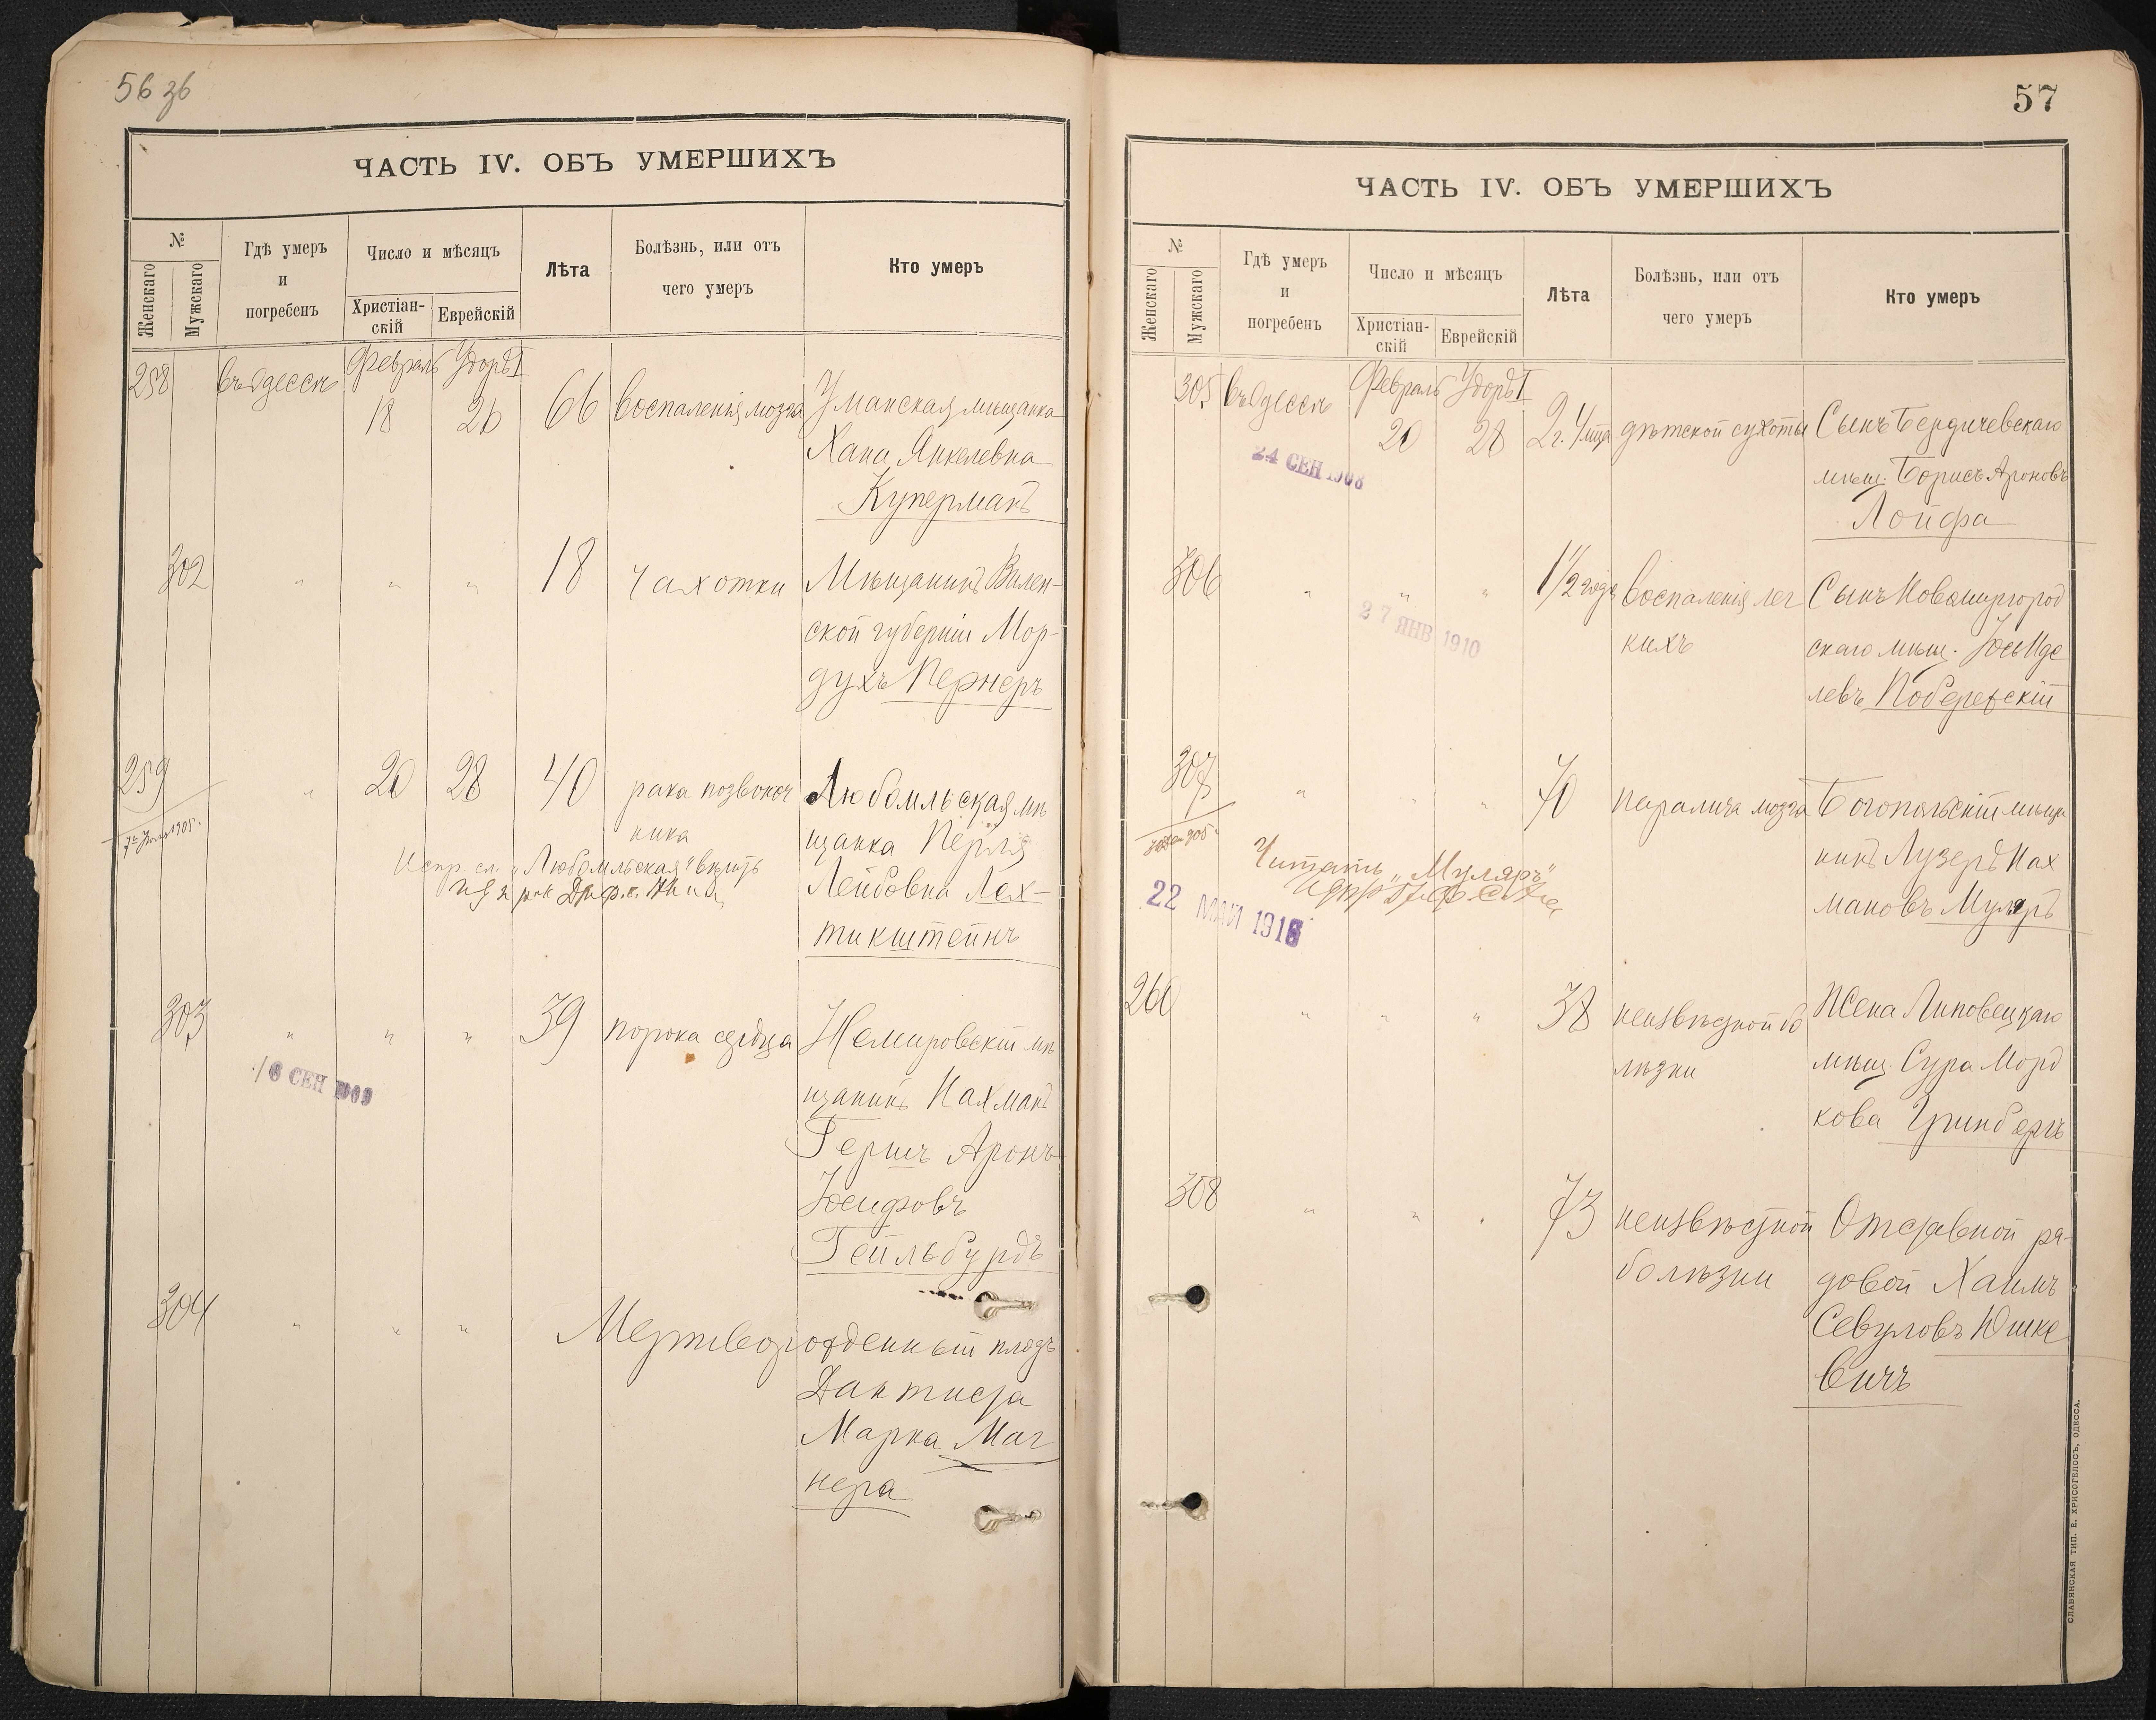 56 зб
ЧАСТЬ IV. ОБЪ УМЕРШИХЪ
№
Женскаго
Мужскаго
Гдѣ умеръ
и
погребенъ
Число и мѣсяцъ
Христіан-
скій
Еврейскій
Лѣта
Болѣзнь, или отъ
чего умеръ
Кто умеръ
258 въ Одессѣ Февраль Удоръ I
18 26 66 воспаленія мозга Уманская мѣщанка
Хана Янкелевна
Куперманъ
302 " " " 18 чахотки Мѣщанинъ Вилен-
ской губерніи Мор-
духъ Пернеръ
259 " 20 28 40 рака позвоноч
ника
Любомльская мѣ
щанка Перля
Лейбовна Лех-
тикштейнъ
Испр. сл. „Любомльская" вѣрить
303 " " " 39 порока сердца Немировскій мѣ
щанинъ Нахманъ
Гершъ Аронъ
Іосифовъ
Гейльбурдъ
16 СЕН 1909
304 " " " Мертворожденный плодъ
Дантиста
Марка Маг
нера
57
ЧАСТЬ IV. ОБЪ УМЕРШИХЪ
№
Женскаго
Мужскаго
Гдѣ умеръ
и
погребенъ
Число и мѣсяцъ
Христіан-
скій
Еврейскій
Лѣта
Болѣзнь, или отъ
чего умеръ
Кто умеръ
305 въ Одессѣ Февраль Удоръ I
20 28 2 г. 4 мца дѣтской сухоты Сынъ Бердичевскаго
мѣщ. Борисъ Ароновъ
Лойфа
24 СЕН 1908
306 " " " 1 1/2 года воспаленія лег
кихъ
Сынъ Новомиргород
скаго мѣщ. Іось Иде
левъ Побережскій
27 ЯНВ 1910
307 " " " 70 паралича мозга Богопольскій мѣща
нинъ Лузеръ Нах
мановъ Муляръ
Читать „Муляръ"
22 МАЙ 1915
260 " " " 38 неизвѣстной бо
лѣзни
Жена Липовецкаго
мѣщ. Сура Морд
кова Гринбергъ
308 " " " 73 неизвѣстной
болѣзни
Отставной ря-
довой Хаимъ
Севуловъ Юшке
вичъ
СЛАВЯНСКАЯ ТИП. Е. ХРИСОГЕЛОСЪ, ОДЕССА.